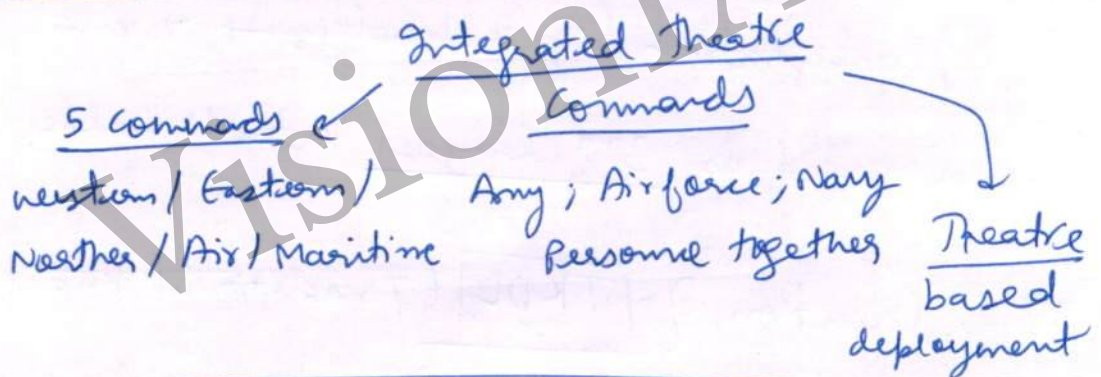 Integrated Theatre
Commands
5 Commads
Western / Eastern /
Norther / Air / Maritime
Army ; Airforce ; Navy
Personne together
Theatre
based
deployment
Vision